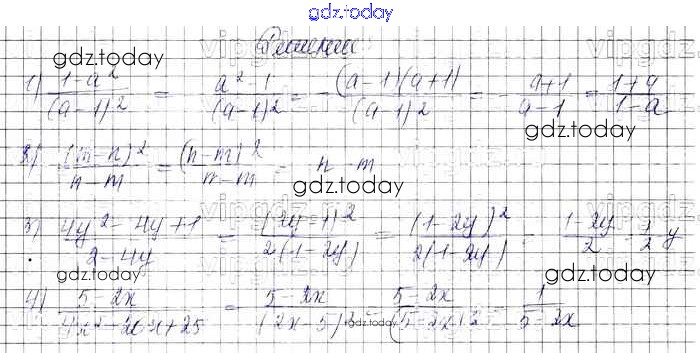 gdz.today
Решение
gdz.today
1) (1-a²)/(a-1)² = (a²-1)/(a-1)² = -((a-1)(a+1))/(a-1)² = -(a+1)/(a-1) = (1+a)/(1-a)
gdz.today
2) (m-n)²/(n-m) = (n-m)²/(n-m) = n-m
gdz.today
3) (4y²-4y+1)/(2-4y) = (2y-1)²/(2(1-2y)) = (1-2y)²/(2(1-2y)) = (1-2y)/2
gdz.today
gdz.today
4) (5-2x)/(4x²-20x+25) = (5-2x)/(2x-5)² = (5-2x)/(5-2x)² = 1/(5-2x)
gdz.today